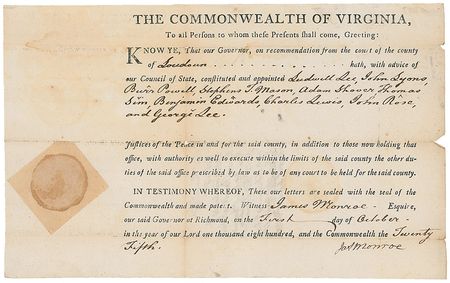 THE COMMONWEALTH OF VIRGINIA,
To all Persons to whom these Presents shall come, Greeting:
KNOW YE, That our Governor, on recommendation from the court of the county
of Loudoun . . . . . . . . . . . . . . . hath, with advice of
our Council of State, constituted and appointed Ludwell Lee, John Lyons,
Burr Powell, Stephens T. Mason, Adam Shover Thomas
Sim, Benjamin Edwards, Charles Lewis, John Rose,
and George Lee.
Justices of the Peace in and for the said county, in addition to those now holding that
office, with authority as well to execute within the limits of the said county the other du-
ties of the said office prescribed by law as to be of any court to be held for the said county.
IN TESTIMONY WHEREOF, These our letters are sealed with the seal of the
Commonwealth and made patent. Witness James Monroe - Esquire,
our said Governor at Richmond, on the First day of October -
in the year of our Lord one thousand eight hundred, and of the Commonwealth the Twenty
Fifth.
Jas Monroe